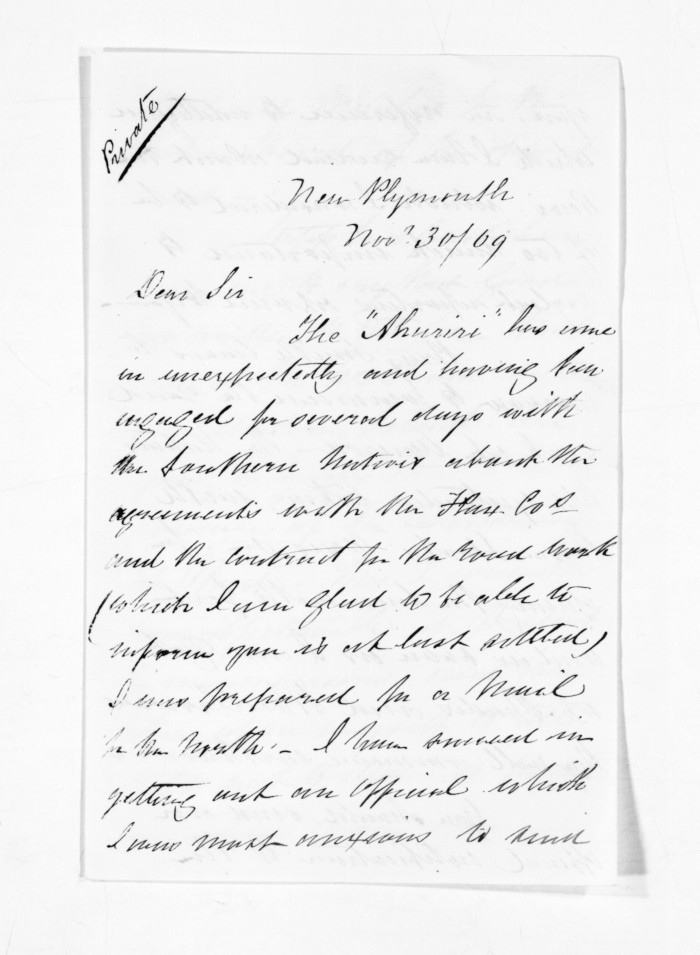 Private
New Plymouth
Novr. 30/69
Dear Sir
The "Ahuriri" has come
in unexpectedly and having been
engaged for several days with
the Southern Natives about the
agreements with the Flax Cos
and the contract for the road work
(which I am glad to be able to
inform you is at last settled)
I was prepared for a Mail
for the North. - I have succeed in
getting out an official which
I was most anxious to send